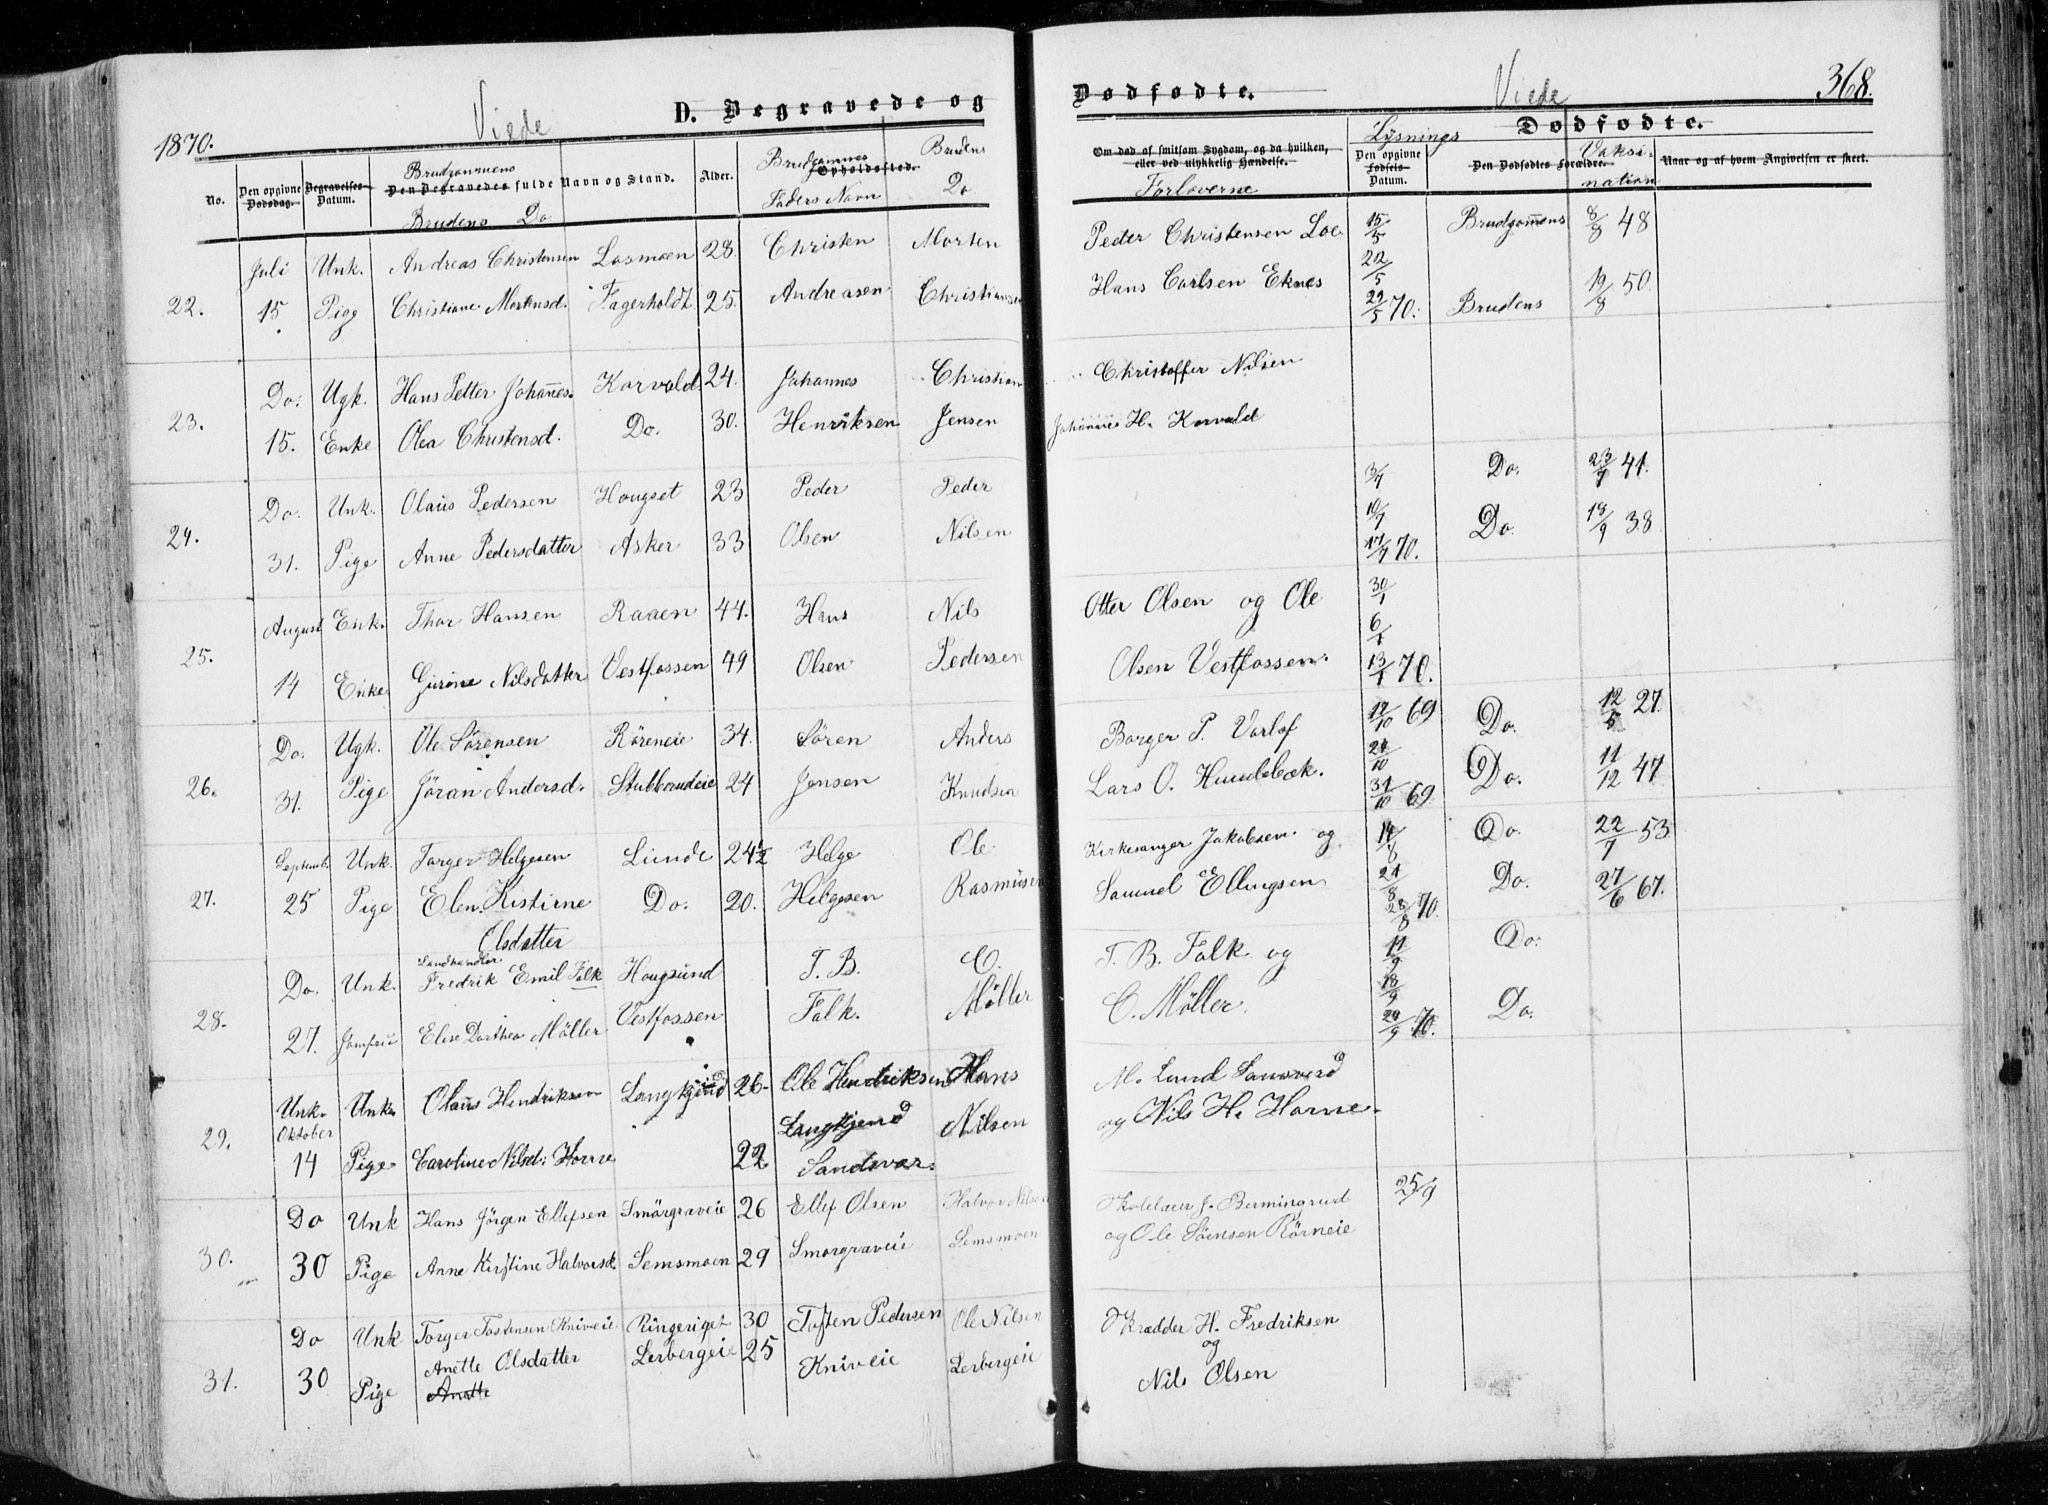 1870. Viede D. Begravede og
No. Den opgivne Dødsdag. Begravelses-Datum. Brudgommens Den Begravedes fulde Navn og Stand. Brudens Do Alder. Brudgommes Opholdssted. Faders Navn Brudens Do
Juli Unk. Andreas Christensen Losmoen 28. Christen Morten
22. 15 Pige Christiane Mortensd. Fagerholdt 25. Andreasen Christiansen
Do. Ugk. Hans Petter Johañes. Korvald 24. Johannes Christian
23. 15. Enke Olea Christensd. Do. 30. Henriksen Jensen
Do. Unk. Olaus Pedersen Hougset 23 Peder Peder
24. 31. Pige Anne Pedersdatter Asker 33 Olsen Nilsen
August Enk. Thor Hansen Raaen 44. Hans Nils
25. 14 Enke Gurine Nilsdatter Vestfossen 49 Olsen Pedersen
Do. Ugk. Ole Sörensen Röreneie 34. Sören Anders
26. 31. Pige Jöran Andersd. Stubberudeie 24 Jensen Knudsen
Septemb. Unk. Torger Helgesen Lunde 24½ Helge Ole
27. 25 Pige Elen Kistirne Do. 20. Helgesen Rasmusen
Olsdatter
Landhandler
Do. Unk. Fredrik Emil Falk Hougsund T. B. C.
28. 27. Jomfru Elise Dorthea Möller Vestfossen Falk. Möller
Unk. Unk. Olaus Hendriksen Langkjend 26. Ole Hendriksen Hans
Oktober Langkjend
29. 14 Pige Caroline Nilsd: Horne 22 Sandsvær. Nilsen
Do Unk Hans Jörgen Ellefsen Smörgraveie 26 Ellef Olsen Halvor Nilsen
30. 30 Pige Anne Kirstine Halvorsd. Semsmoen 29 Smorgraveie Semsmoen
Do Unk Torger Tostensen Kniveie Ringeriget 30 Tosten Pedersen Ole Nilsen
Anette Olsdatter Lerbergeie 25
31. 30 Pige Anette Kniveie Lerbergeie
Dødfødte. Viede 368.
Dødfødte.
Om død af smitsom Sygdom, og da hvilken, eller ved ulykkelig Hændelse. Forloverne Lysnings Den opgivne Fødsels-Datum. Den Dødfødtes Forældre. Vaksination Naar og af hvem Angivelsen er skeet.
Peder Christensen Loe 15/5 Brudgomens 8/8 48
22/5
Hans Carlsen Eknes 29/5 70. Brudens 19/8 50.
Christoffer Nilsen
Johannes H. Korvald
3/7 Do. 23/7 41.
10/7 Do. 18/9 38
17/7 70.
Otter Olsen og Ole 30/1
6/
Olsen Vestfossen. 13/ 70.
Borger P. Varlof 17/10 69 Do. 12/5 27.
24/10
Lars O. Hundebæk. 31/10 69. Do. 11/12 47
Kirkesanger Jakobsen og 14/8 Do. 22/7 53
Samuel Ellingsen 21/8 Do. 27/6 67.
28/8 70.
T. B. Falk og 11/9 Do.
18/9
C. Möller. 9 70. Do.
M. Lund Sansverd
og Nils H. Horne.
Skolelærer J. Bermingrud 25/9
og Ole Sörensen Rörneie
Skrædder H. Fredriksen
og
Nils Olsen